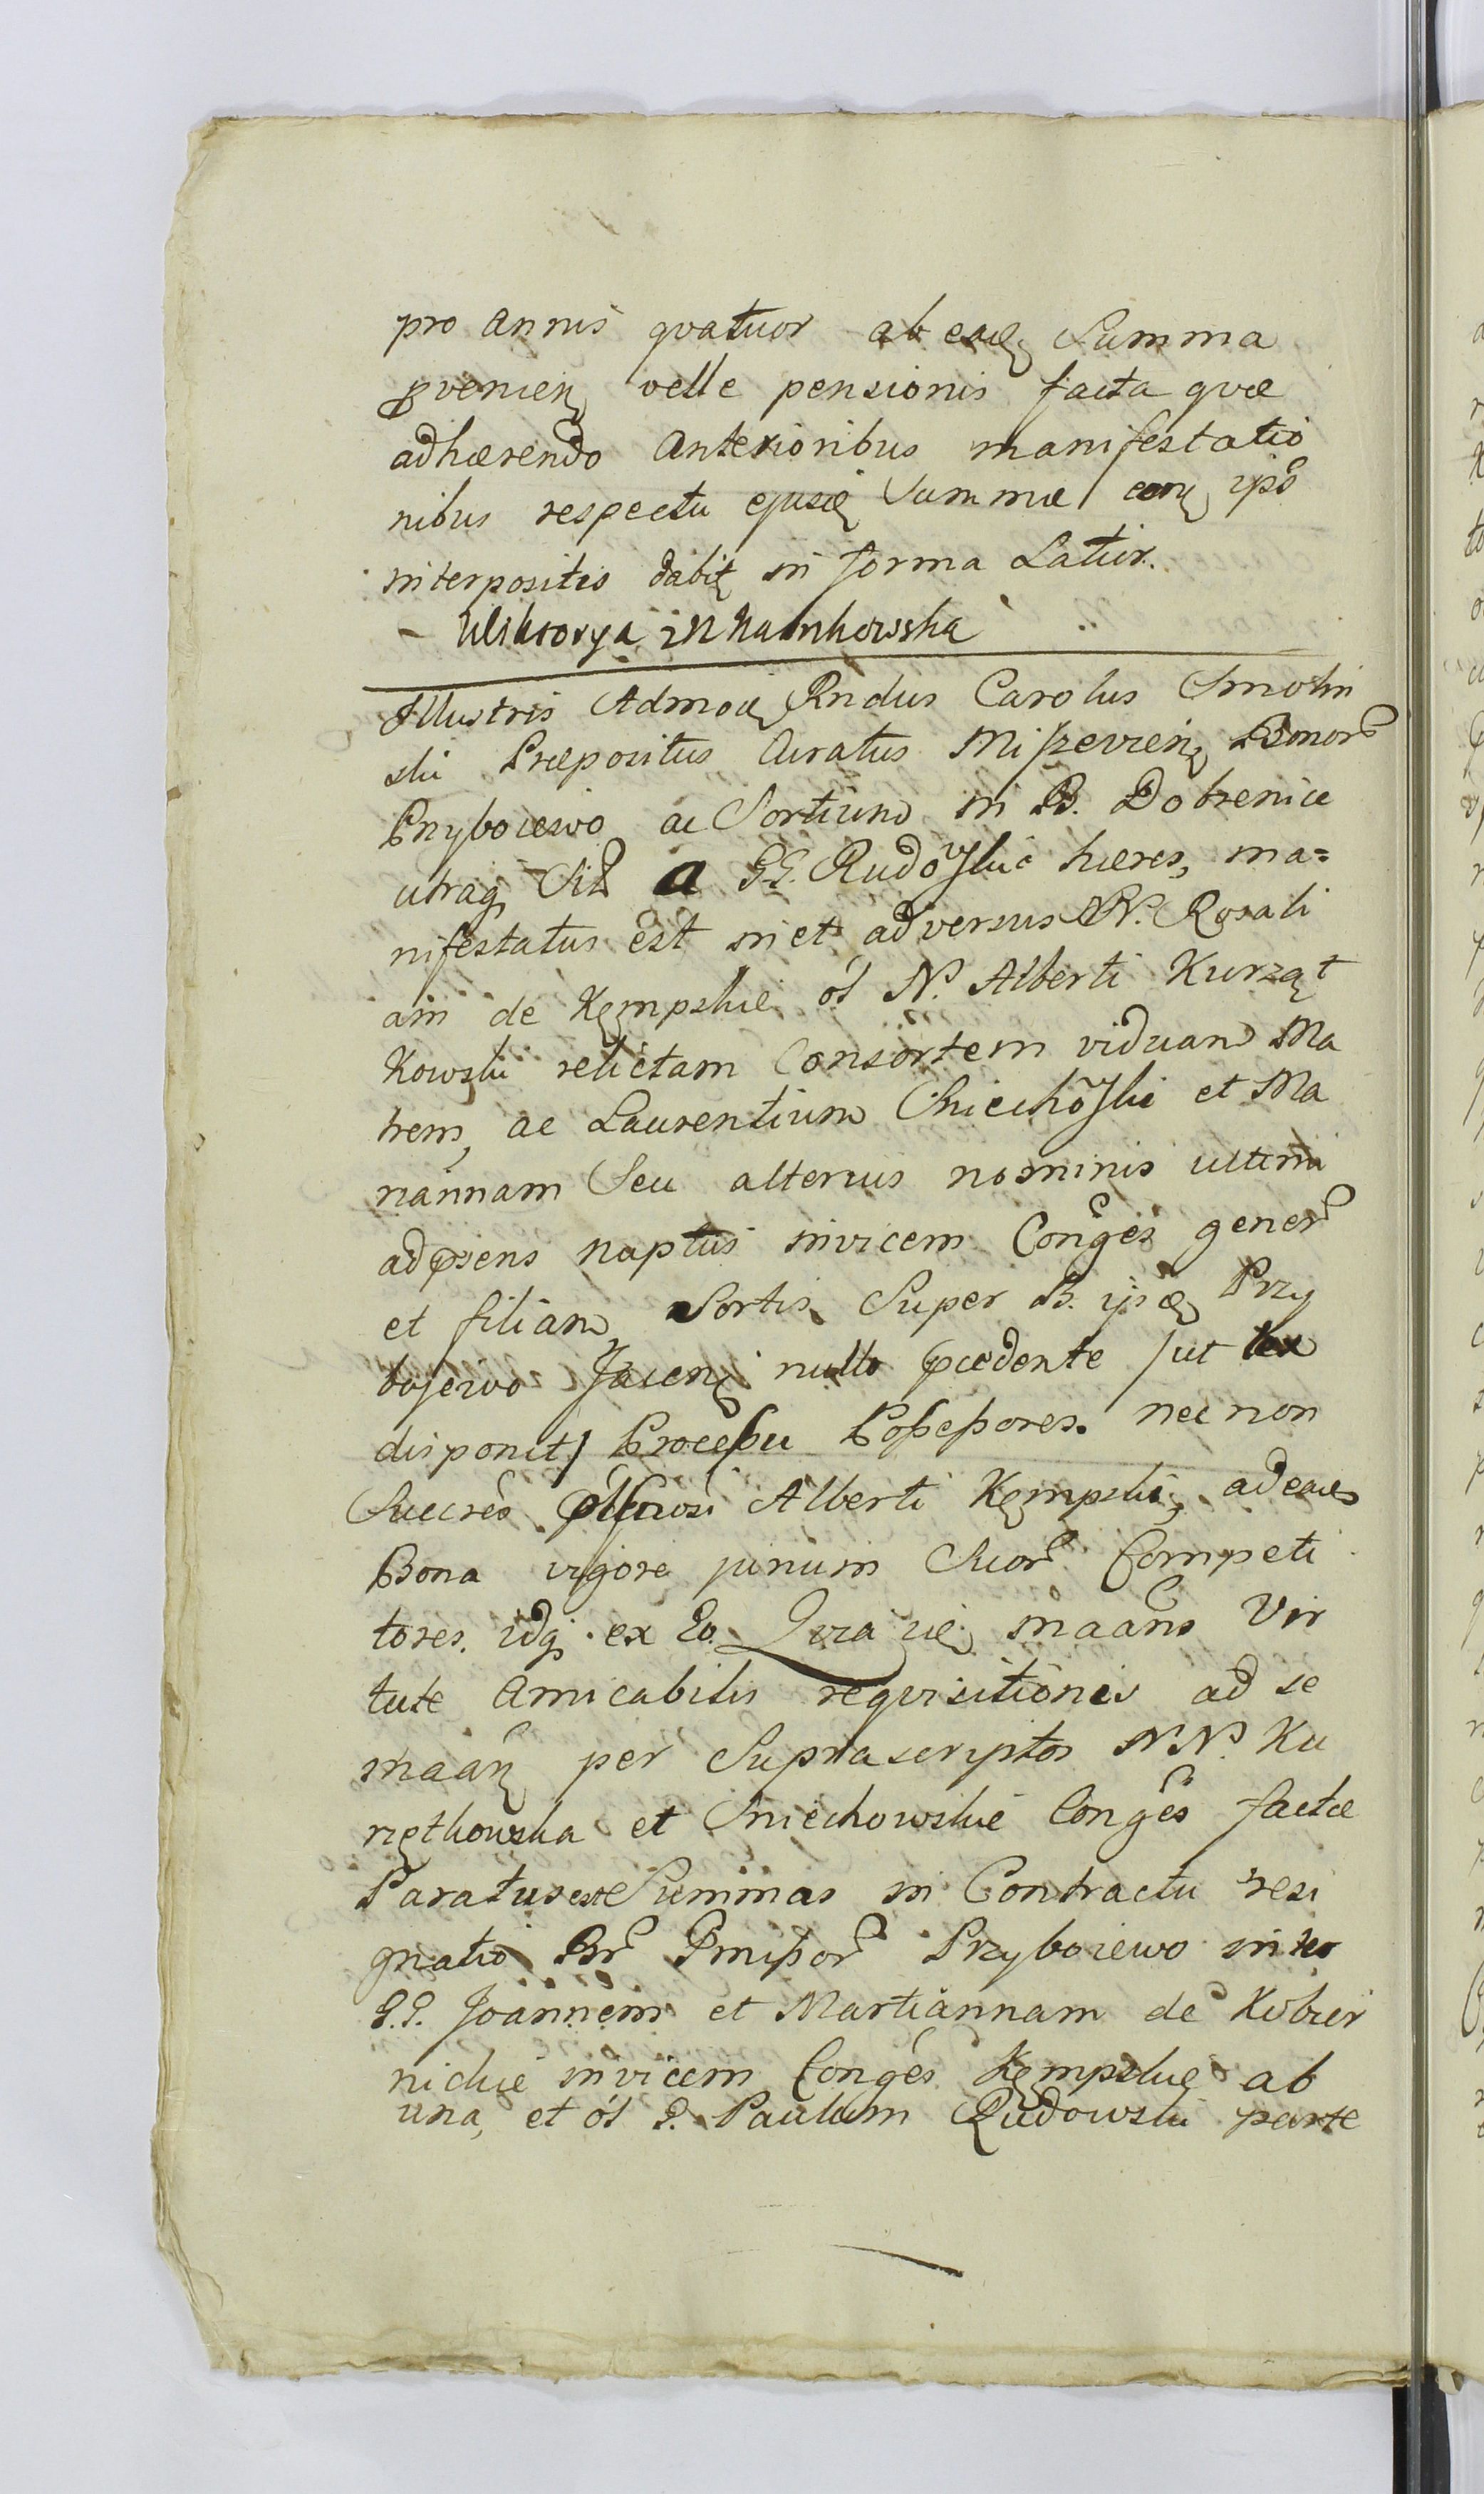 pro annis qvatuor ab ead Summa
pvenien velle pensionis facta qvæ
adhærendo Anterioribus manifestatio
nibus respectu ejusd Summæ ipo
interpositis dabit in forma Latior.
Wiktorya
Illustris Admod Rndus Carolus Smolin
ski Præpositus Curatus Miszevien Bonor
Przyboiewo ac Sortium in B. Dobrenice
utraq Sit a GG. Rudoskie hæres, ma=
nifestatus est in et adversus N. Rosali
am de Kempskie ol N. Alberti Kurząt
Kowski relictam Consortem viduam Ma
trem, ac Laurentium Sniechoskie et Ma
riannam Seu alterius nominis ultimi
ad psens nuptus invicem Conges gener
et filiam Sortis Super B. ipsæ Przy
bojewo Jacen nullo pcedente /ut lex
disponit/ Processu Possessores. nec non
Succres Alberti Kempski, ad ead
Bona vigore jurium Suor Competi
tores. idq ex Eo. Quia ie maans Vir
tute Amicabilis reqvisitionis ad se
maan per Suprascriptos N N. Ku
rzętkowska et Sniechowskie Conges factæ
Paratus est Summas in Contractu resi
gnatio Br Pmissor Przyboiewo inter
G.G. Joannem et Martiannam de Kobier
nickie invicem Conges Kempskie ab
una, et ol G. Paulum Rudowski parte